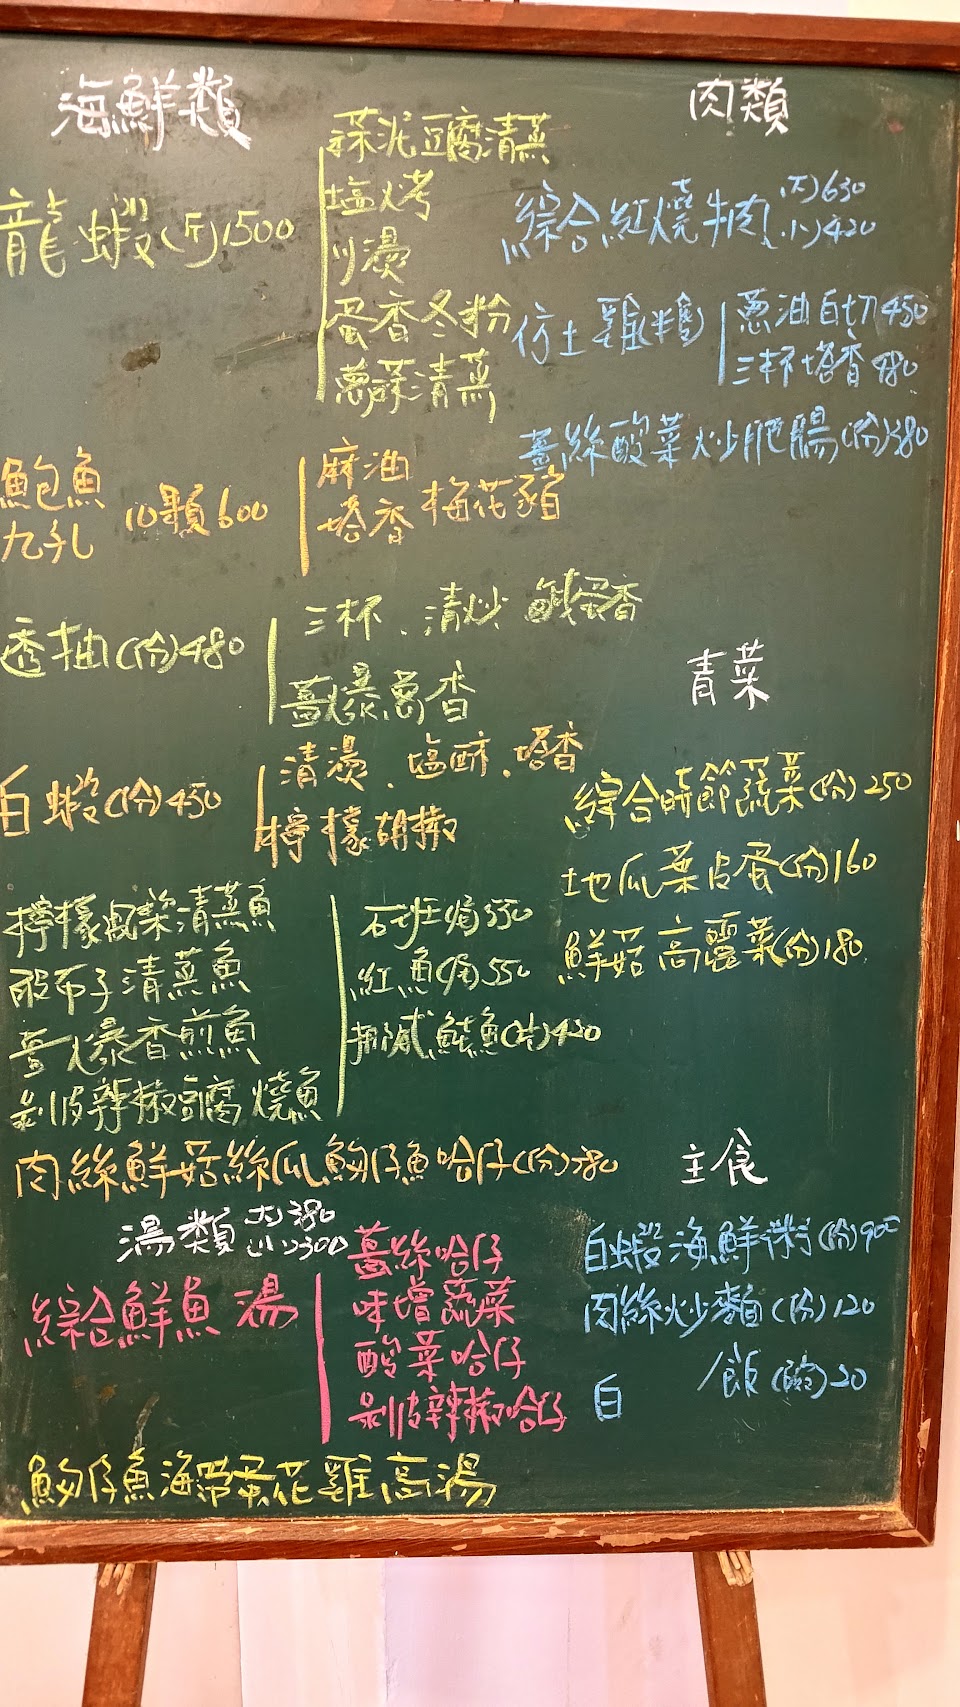 海鮮類
龍蝦(斤)1500
蒜泥豆腐清蒸
塩烤
川燙
蛋香冬粉
蔥蒜清蒸
鮑魚
九孔
10顆600
麻油
塔香 梅花豬
透抽(份)480
三杯.清炒 鹹蛋香
薑爆蔥香
白蝦(份)450
清燙.塩酥.塔香
檸檬胡椒
檸檬鳳梨清蒸魚
破布子清蒸魚
薑爆香煎魚
剝皮辣椒豆腐燒魚
石班
紅魚 550
挪威鮭魚(片)420
肉絲鮮菇絲瓜魩仔魚哈仔(份)380
湯類 大)380
(小)300
綜合鮮魚湯
薑絲哈仔
味增蔬菜
酸菜哈仔
剝皮辣椒哈仔
魩仔魚海帶蛋花雞高湯
肉類
綜合紅燒牛肉 (大)630
(小)420
仿土雞
蔥油白切450
三杯塔香480
薑絲酸菜炒肥腸(份)380
青菜
綜合時節蔬菜(份)250
地瓜葉皮蛋(份)160
鮮菇高麗菜(份)180
主食
白蝦海鮮粥(份)
肉絲炒麵(份)120
白飯(碗)20